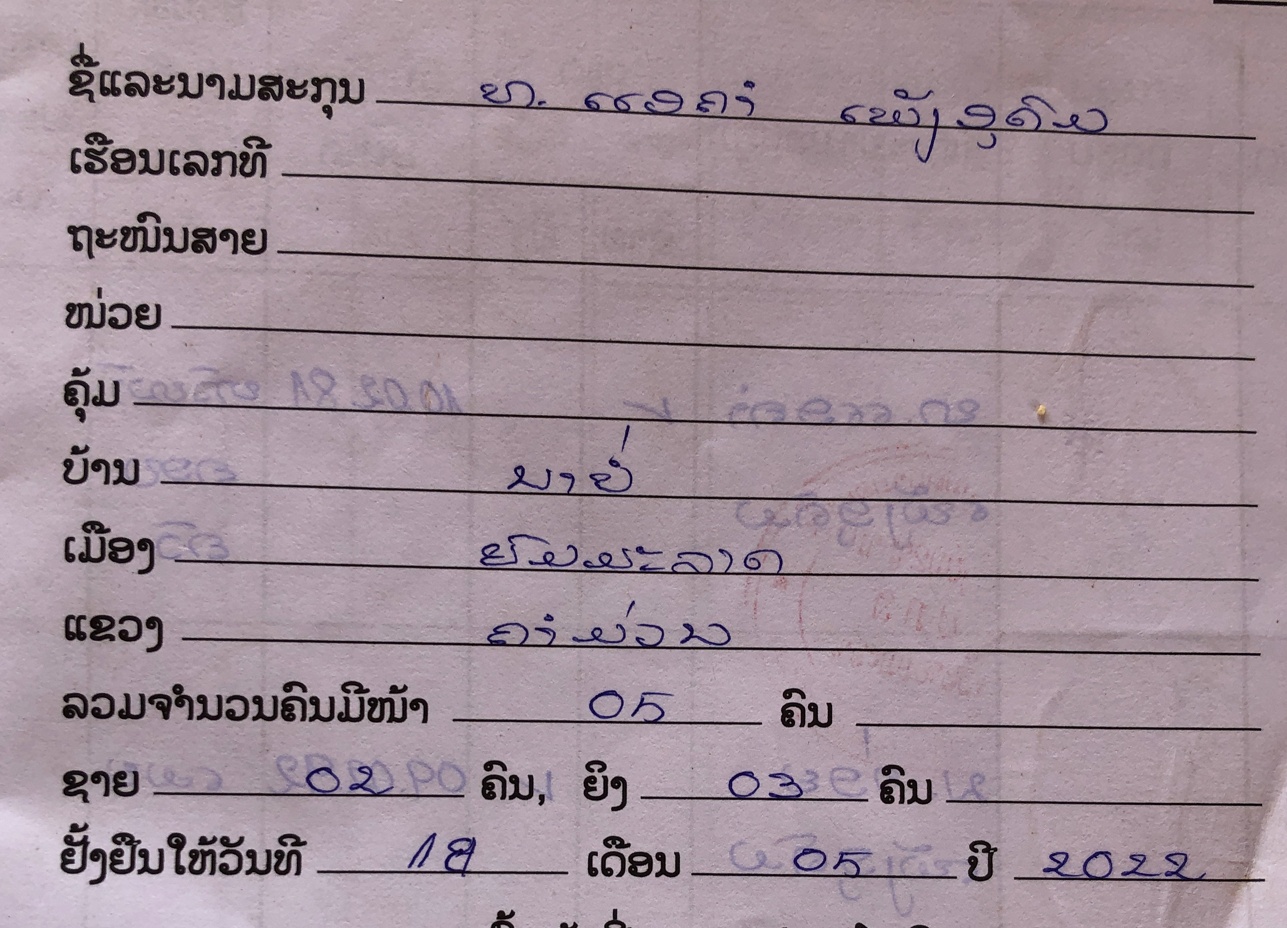 ຊື່ແລະນາມສະກຸນ ທ. ແອຄຳ ເພັງອຸດົມ
ເຮືອນເລກທີ
ຖະໜົນສາຍ
ໜ່ວຍ
ຄຸ້ມ
ບ້ານ ນາຍໍ່
ເມືອງ ຍົມມະລາດ
ແຂວງ ຄຳມ່ວນ
ລວມຈຳນວນຄົນມີໜ້າ 05 ຄົນ
ຊາຍ 02 ຄົນ, ຍິງ 03 ຄົນ
ຢັ້ງຢືນໃຫ້ວັນທີ 18 ເດືອນ 05 ປີ 2022